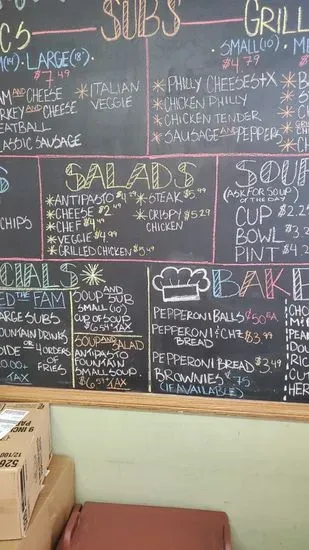 SUBS
GRILL
SMALL(10")
LARGE(18")
$7.49
AND CHEESE
AND CHEESE
EATBALL
LASSIC SAUSAGE
*ITALIAN
VEGGIE
*PHILLY CHEESESTX
*CHICKEN PHILLY
*CHICKEN TENDER
*SAUSAGE AND PEPPERS
CHIPS
SALADS
*ANTIPASTO
*CHEESE $2.49
*CHEF $4.49
*VEGGIE $4.99
*GRILLED CHICKEN
*STEAK $5.99
*CRISPY $5.29
CHICKEN
SOUP
(ASK FOR SOUP
OF THE DAY)
CUP $2.2
BOWL $3.
PINT $4.2
CIALS*
ED THE FAM
ARGE SUBS
OUNTAIN DRINKS
OR 4 ORDERS
OF FRIES
TAX
SOUP AND SUB
SMALL (10)
8 OZ OF SOUP
$6.54+TAX
SOUP AND SALAD
ANTIPASTO
FOUNTAIN
SMALL SOUP
$6.54+TAX
BAKE
PEPPERONI BALLS $.50 EA
PEPPERONI & CHZ $3.99
BREAD
PEPPERONI BREAD $3.49
BROWNIES $.75
(IF AVAILABLE)
CHO
PEA
DOU
RIC
CU
HER